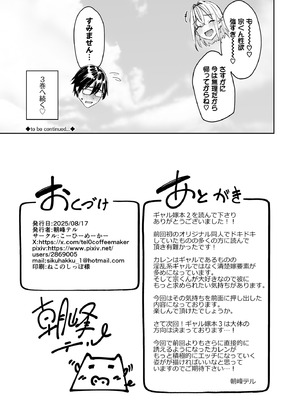 も～～～♡
宗くん性欲
強すぎ～♡♡
さすがに
今は無理だから
帰ってからね♡
すみません…
3巻へ続く♡
◆to be continued...◆
あとがき
ギャル嫁本2を読んで下さり
ありがとうございました！！
前回初のオリジナル同人でドキドキ
していたものの多くの方に読んで
頂き有難かったです！
カレンはギャルであるものの
淫乱系ギャルではなく清楚嫁蓄素が
多めになっています。
そして二度目の大人verなので彼に
もっと求められたい気持ちがあります。
今回はその気持ちを前面に押し出した
内容になっております。
楽しんで頂けたでしょうか。
さて次回！ギャル嫁本3は大体の
方向は決まっております…！
今回で前回よりもさらに直接的に
誘えるようになったカレンが
もっと積極的にエッチになっていく
姿がが描ければいいなと思って
いるのでご期待下さい…！
朝峰テル
おくづけ
発行日:2025/08/17
発行者:朝峰テル
サークル:こーひーめーかー
X:https://x.com/tel0coffeemaker
pixiv:https://www.pixiv.net/
users/2869005
mail:sikuhakku_1@hotmail.com
印刷:ねこのしっぽ様
朝峰
テル